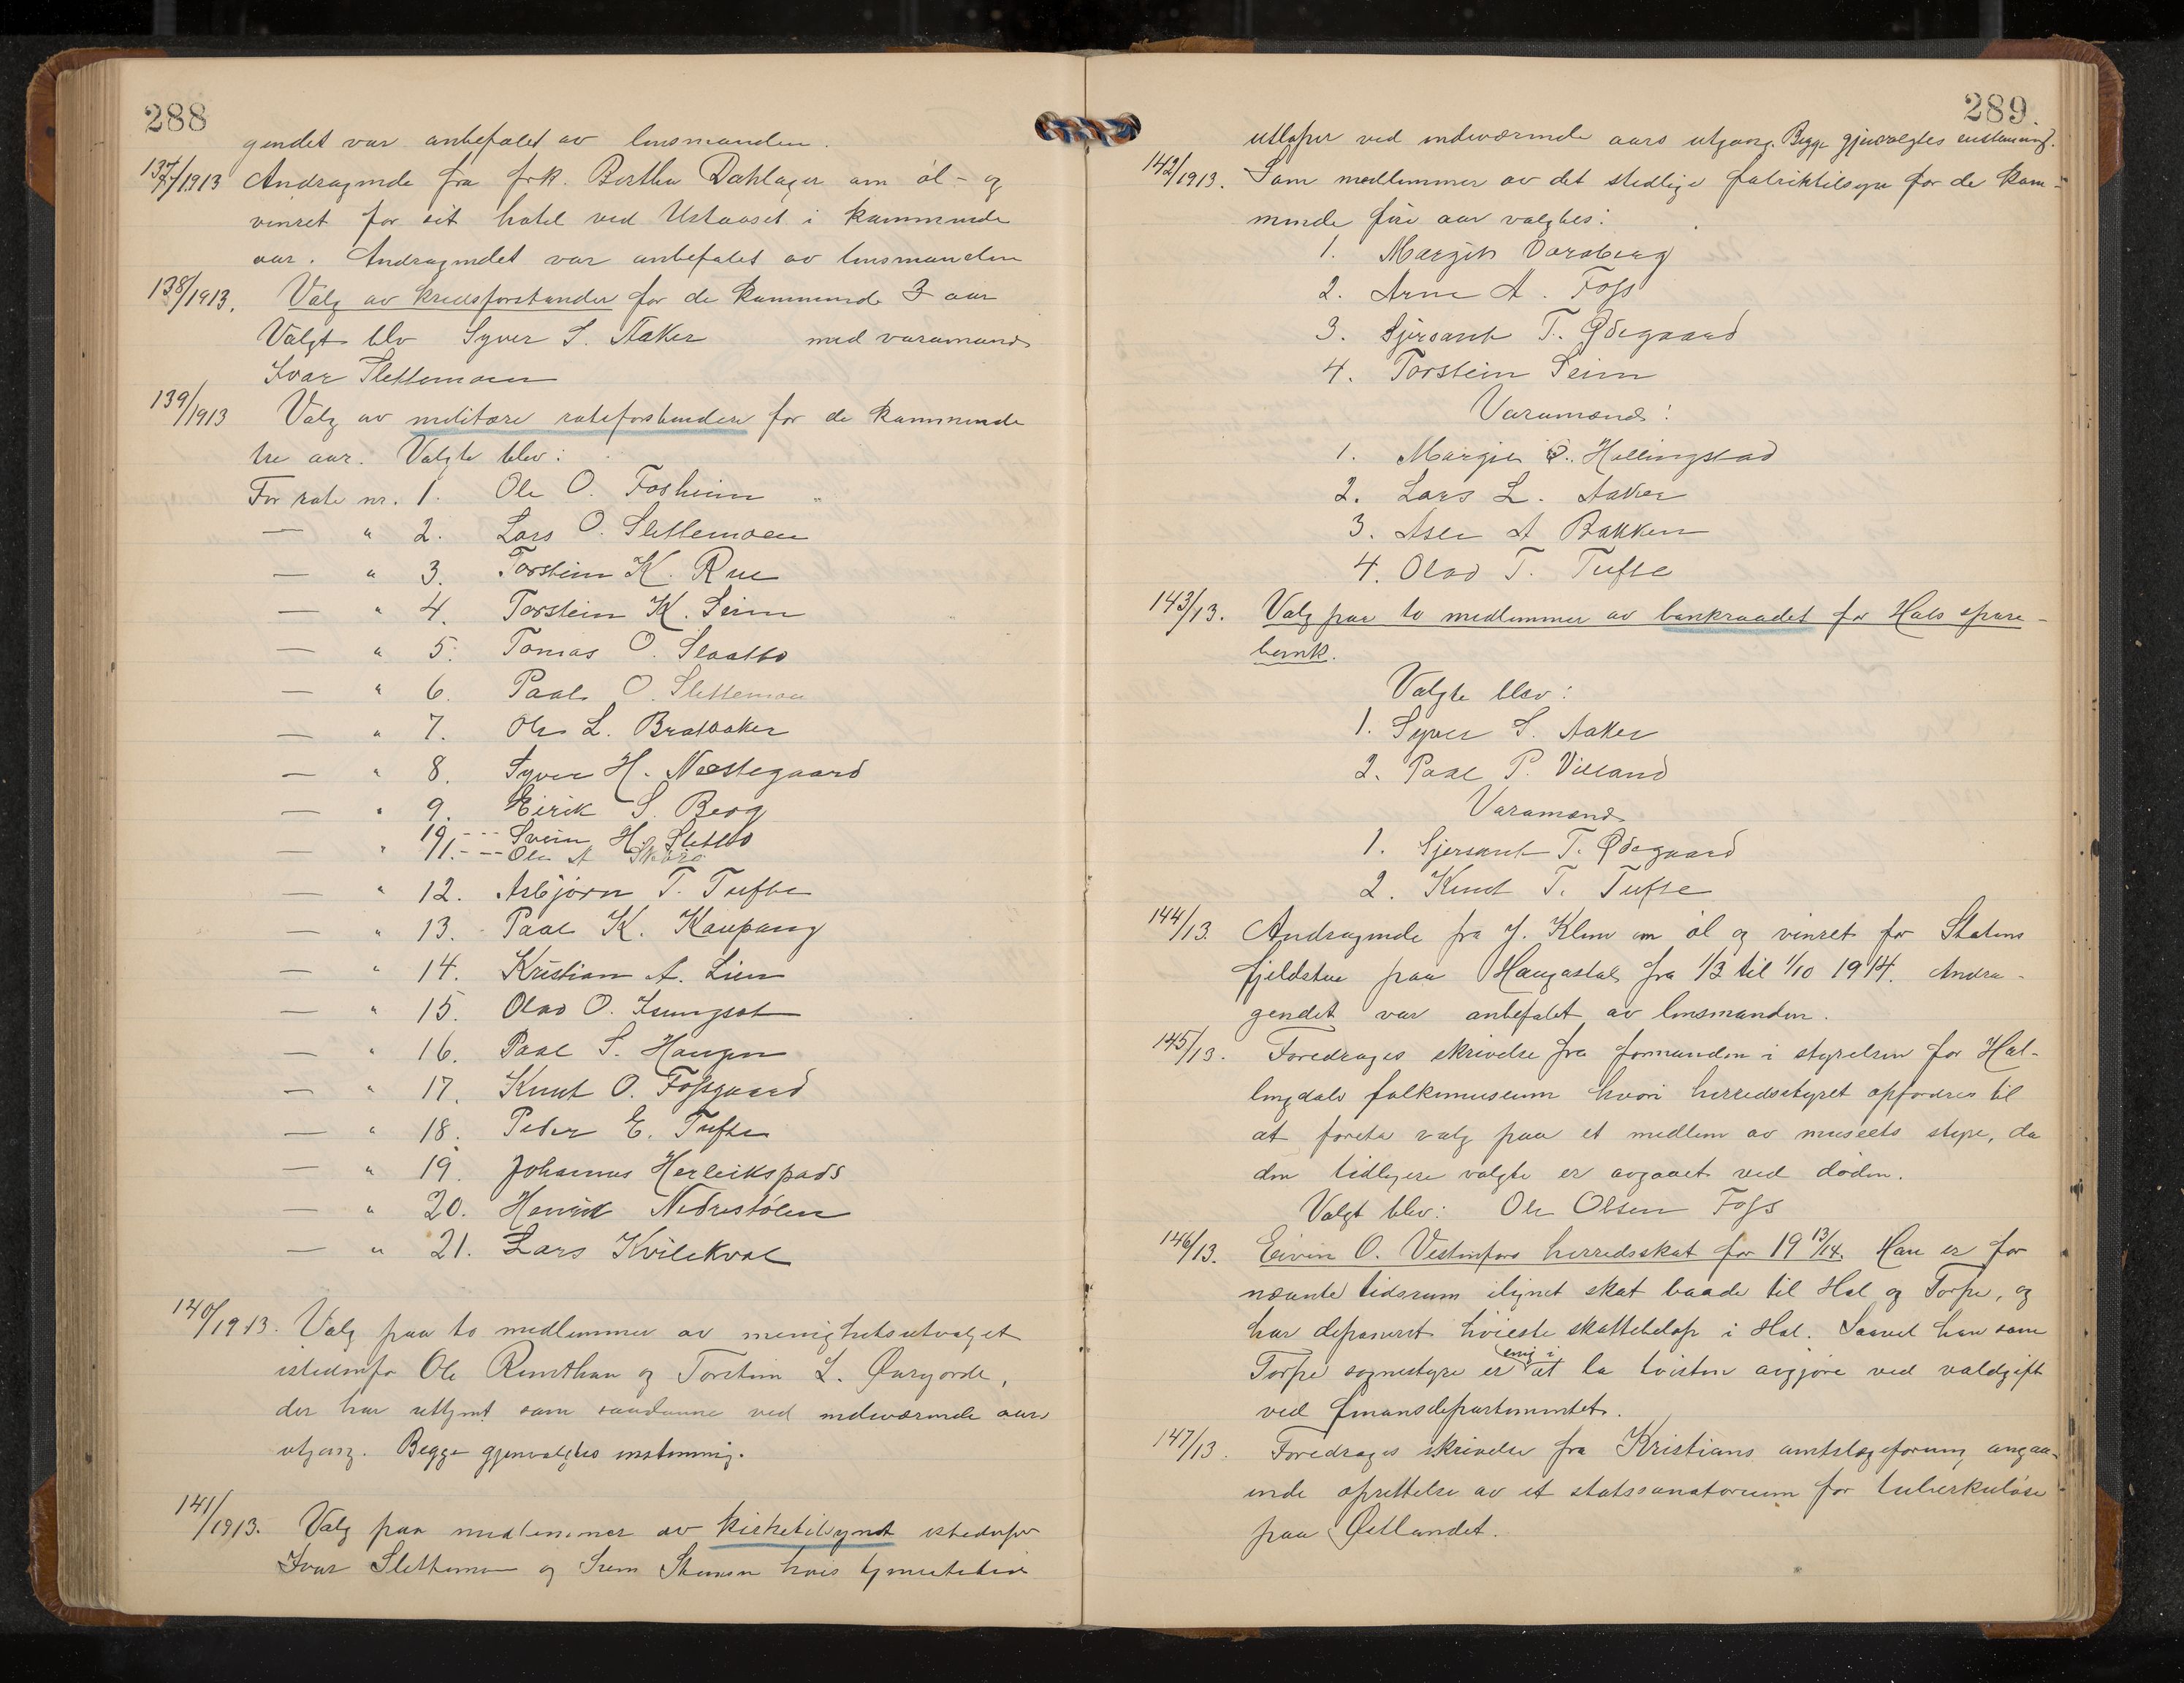 288
gendet var anbefalet av lensmanden.
137/1913 Andragende fra frk. Bertha Dahlager om øl- og
vinret for sit hotel ved Ustaoset i kommende
aar. Andragendet var anbefalet av lensmanden
138/1913. Valg av kredsforstander for de kommende 3 aar
Valgt blev Syver S. Aaker med varamand
Ivar Slettemoen
139/1913 Valg av militære roteforstandere for de kommende
tre aar. Valgte blev:
For rote nr. 1. Ole O. Fosheim
— " 2. Lars O. Slettemoen
— " 3. Torstein K. Rue
— " 4. Torstein K. Seim
— " 5. Tomas O. Slaatto
— " 6. Paal O. Slettemoen
— " 7. Ole L. Brataaker
— " 8. Syver H. Næstegaard
— " 9. Eirik S. Berg
— " 10. - - - Svein H. Sletto
11. - - - Ole A. Skøro
— " 12. Asbjørn T. Tufte
— " 13. Paal K. Kaupang
— " 14. Kristian A. Lien
— " 15. Olav O. Isungset
— " 16. Paal S. Haugen
— " 17. Knut O. Fossgaard
— " 18. Peder E. Tufte
— " 19. Johannes Herleikspads
— " 20. Henrik Nedrestølen
— " 21. Lars Kvilekval
140/1913. Valg paa to medlemmer av menighetsutvalget
istedenfor Ole Rensthun og Torstein L. Øvrejorde,
der har uttjent som saadanne ved indeværende aars
utgang. Begge gjenvalgtes enstemmig.
141/1913. Valg paa medlemmer av kirketilsynet istedenfor
Ivar Slettemoen og Svein hvis tjenestetid
289.
utløper ved indeværende aars utgang. Begge gjenvalgtes enstemmig.
142/1913. Som medlemmer av det stedlige fabriktilsyn for de kom-
mende fire aar valgtes:
1. Margit Varaberg
2. Arne A. Foss
3. Sjersant T. Ødegaard
4. Torstein Seim
Varamænd:
1. Margit O. Hallingstad
2. Lars L. Aaker
3. Asle A Bakken
4. Olav T. Tufte
143/13. Valg paa to medlemmer av bankraadet for Hols spare-
bank.
Valgte blev:
1. Syver S. Aaker
2. Paal P. Villand
Varamænd
1. Sjersant T. Ødegaard
2. Knut T. Tufte
144/13. Andragende fra J. Klem om øl og vinret for Statens
fjeldstue paa Haugastøl fra 1/3 til 1/10 1914. Andra-
gendet var anbefalet av lensmanden.
145/13. Foredrages skrivelse fra formanden i styrelsen for Hal-
lingdals folkemuseum hvori herredsstyret opfordres til
at foreta valg paa et medlem av museets styre, da
den tidligere valgte er avgaaet ved døden.
Valgt blev: Ole Olsen Foss
146/13. Eivin O. Vestenfors herredsskat for 1913/14. Han er for
nævnte tidsrum ilignet skat baade til Hol og Torpe, og
har deponeret høieste skattebeløp i Hol. Saavel han som
Torpe sognestyre er enig i at la tvisten avgjøre ved voldgift
ved finansdepartementet.
147/13. Foredrages skrivelse fra Kristians amtslægeforening angaa-
ende oprettelse av et statssanatorium for tuberkuløse
paa Østlandet.